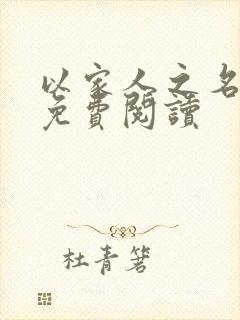 以家人之名
免費閱讀
杜青箬